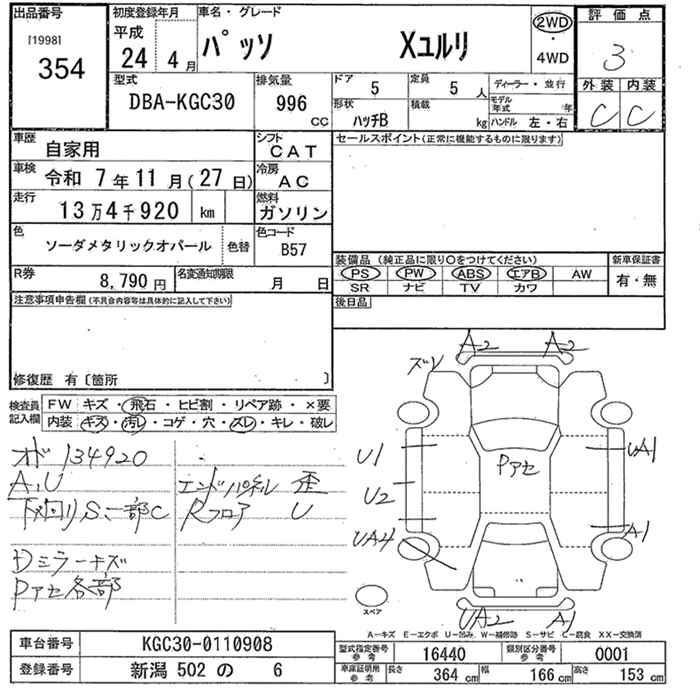 出品番号
[1998]
354
初度登録年月
平成
24年 4月
車名・グレード
パッソ Xユルリ
2WD
・
4WD
評価点
3
外装 内装
C C
型式
DBA-KGC30
排気量
996
cc
ドア
5
定員
5人
形状
ハッチB
積載
kg
ディーラー・並行
モデル年式 年
ハンドル 左・右
車歴
自家用
シフト
CAT
車検
令和 7年 11月(27日)
冷房
AC
走行
13万4千920 km
燃料
ガソリン
色
ソーダメタリックオパール
色替
色コード
B57
R券
8,790円
名変通知期限
月 日
セールスポイント(正常に機能するものに限ります)
装備品(純正品に限り○をつけてください)
PS PW ABS エアB AW
SR ナビ TV カワ
新車保証書
有・無
後日品
注意事項申告欄(不具合内容等は具体的に記入して下さい)
修復歴 有〔箇所 〕
検査員
記入欄
FW キズ・飛石・ヒビ割・リペア跡・×要
内装・キズ・汚レ・コゲ・穴・ズレ・キレ・破レ
オド134920
A、U
下回りS、一部C
エンドパネル 歪
Rフロア U
Dミラーキズ
Pアセ各部
A2 A2
ズレ
U1
U2
UA4
Pアセ
UA1
A1
UA2 A1
スペア
A-キズ E-エクボ U-凹み W-補修跡 S-サビ C-腐食 XX-交換済
車台番号
KGC30-0110908
登録番号
新潟 502 の 6
型式指定番号
参考
16440
類別区分番号
参考
0001
車庫証明用
参考
長さ
364 cm
幅
166 cm
高さ
153 cm